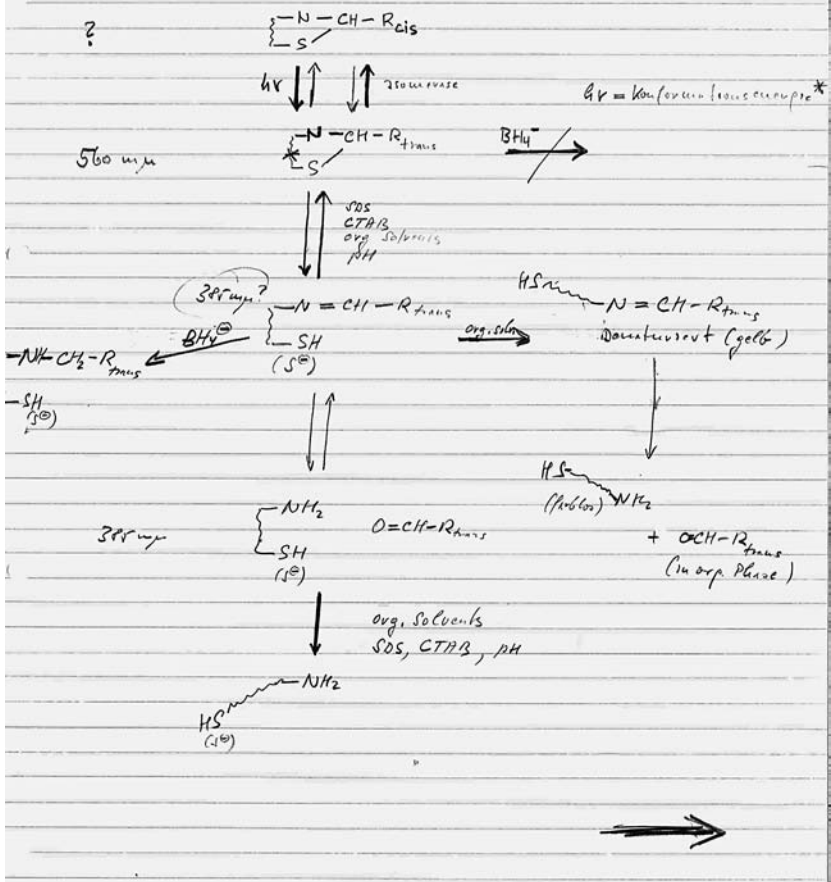 ?
N – CH – R cis
S
hν
Isomerase
hν = Konformationsenergie *
560 mµ
N – CH – R trans
S
BH4⁻
SDS
CTAB
org. Solvents
pH
385 mµ?
N = CH – R trans
SH
(S⊖)
BH4⊖
org. solv.
HS
N = CH – R trans
Denaturiert (gelb)
– NH – CH2 – R trans
– SH
(S⊖)
HS
(farblos) NH2
+ O=CH–R trans
(in org. Phase)
385 mµ
NH2
SH
(S⊖)
O=CH–R trans
org. Solvents
SDS, CTAB, pH
NH2
HS
(S⊖)